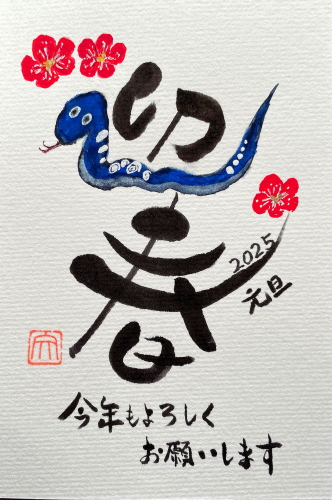 迎春
2025
元旦
今年もよろしく
お願いします